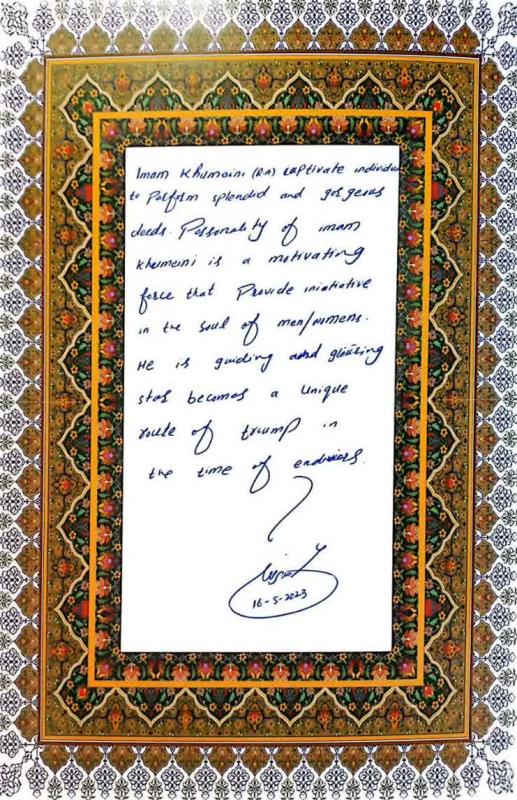 Imam Khumaini (RA) captivate individu
to Perform splendid and gorgeous
deeds. Personality of imam
Khumeini is a motivating
force that Provide iniatiative
in the soul of men/womens.
He is guiding and
star becomes a unique
route of trump in
the time of
16-5-2023